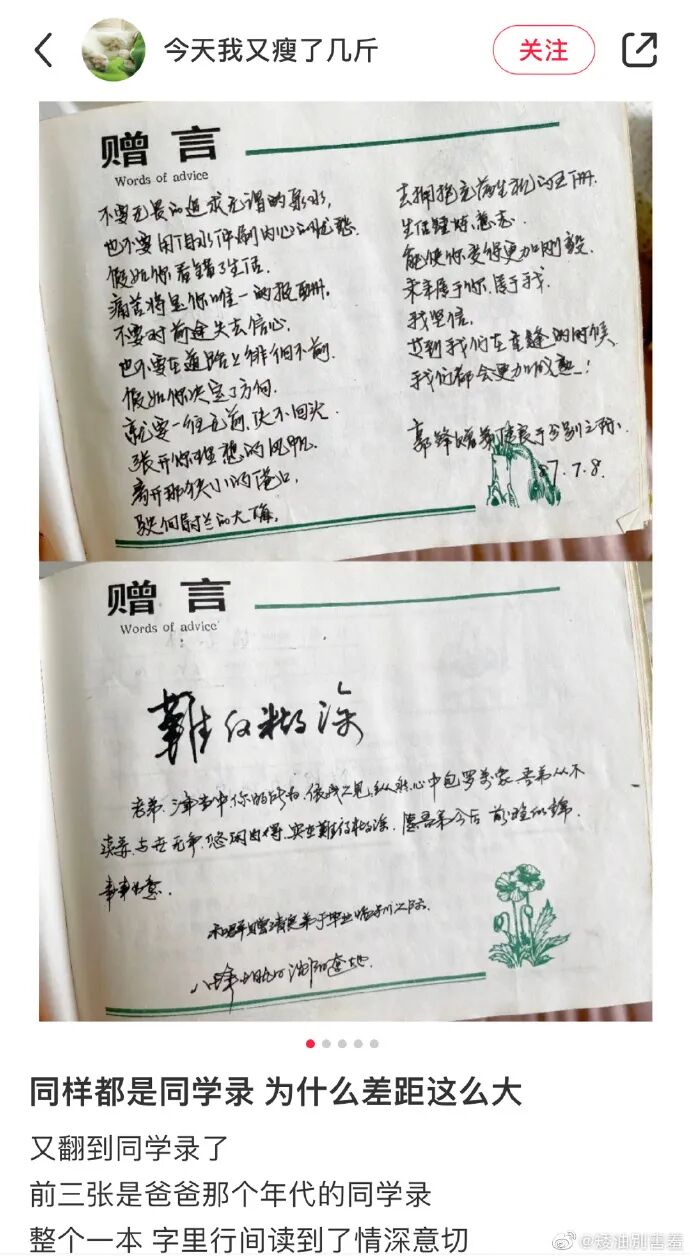 今天我又瘦了几斤
关注
赠言
Words of advice
不要无畏的追求无谓的泉水,
也不要用泪水冲刷内心的忧愁.
假如你看错了生活.
痛苦将是你唯一的报酬.
不要对前途失去信心.
也不要在道路上徘徊不前.
假如你决定了方向.
就要一往无前,决不回头.
张开你理想的风帆.
离开那狭小的港口,
驶向蔚兰的大海,
去拥抱充满生机的
生活锤炼意志.
能使你变得更加刚毅.
未来属于你,属于我.
我坚信.
我们在重逢的时候
我们都会更加成熟!
7.7.8.
赠言
Words of advice
難得糊涂
老弟
心中包罗万象
与世无争,悠闲自得,实在難得糊涂.愿吾弟今后前途似锦.
事事如意.
同样都是同学录 为什么差距这么大
又翻到同学录了
前三张是爸爸那个年代的同学录
整个一本 字里行间读到了情深意切
@矮油别害羞